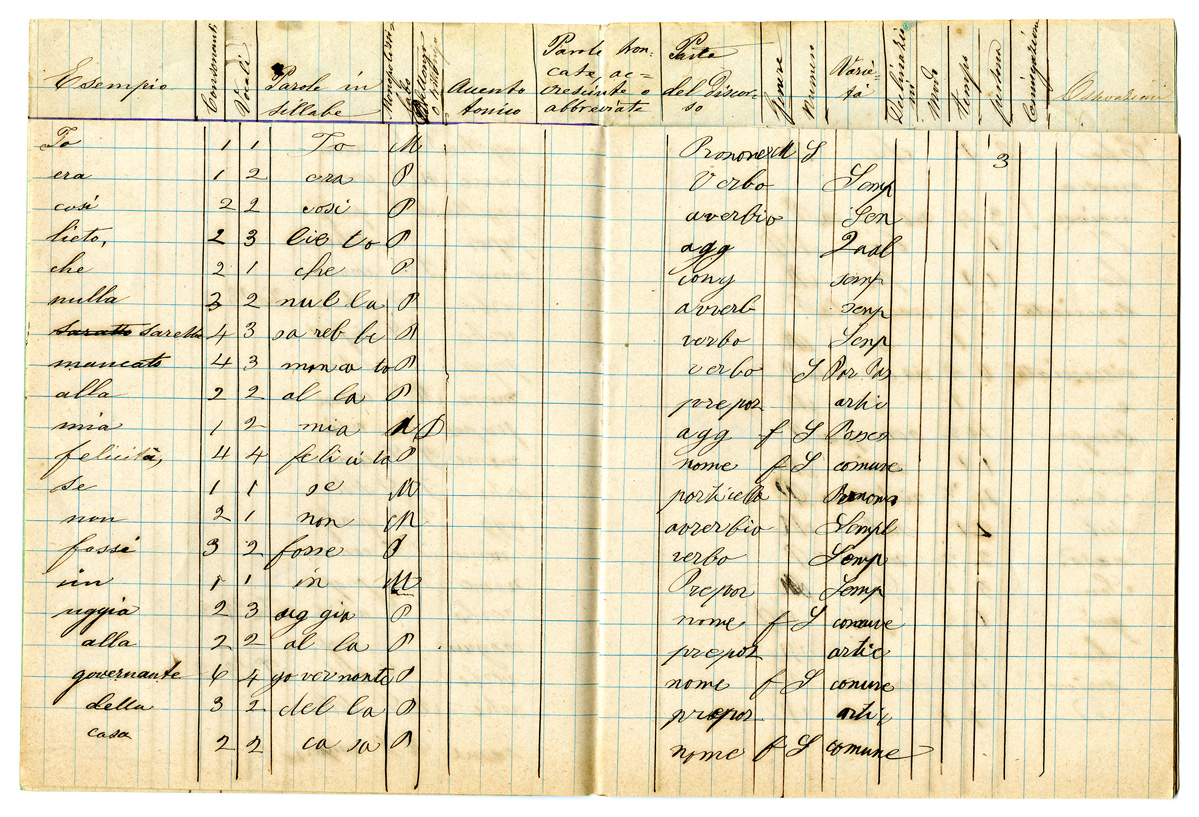 Esempio Consonanti Vocali Parole in sillabe Accento tonico Parole tron- cate, ac= cresciute o abbreviate Parte del Discor- so Genere Numero Varie- tà Modo Tempo Persona Osservazioni
Io 1 1 Io M Pronome M S 3
era 1 2 era P Verbo Semp
così 2 2 così P averbio Sen
lieto, 2 3 lie to P agg Qual
che 2 1 che P cong semp
nulla 3 2 nul la P avverb semp
sarebb 4 3 sa reb be P verbo Senp
mancato 4 3 man ca to P verbo S Par Pas
alla 2 2 al la P prepoz artic
mia 1 2 mia D agg f S Posses
felicità, 4 4 feli ci ta P nome f S comure
se 1 1 se M porticella Pronom
non 2 1 non M avverbio Sempl
fossi 3 2 fosse P verbo Semp
in 1 1 in M Prepoz Semp
uggia 2 3 ug gia P nome f S comuve
alla 2 2 al la P prepoz artic
governante 6 4 go vernonte P nome f S comure
della 3 2 del la P prepoz artic
casa 2 2 ca sa P nome f S comune